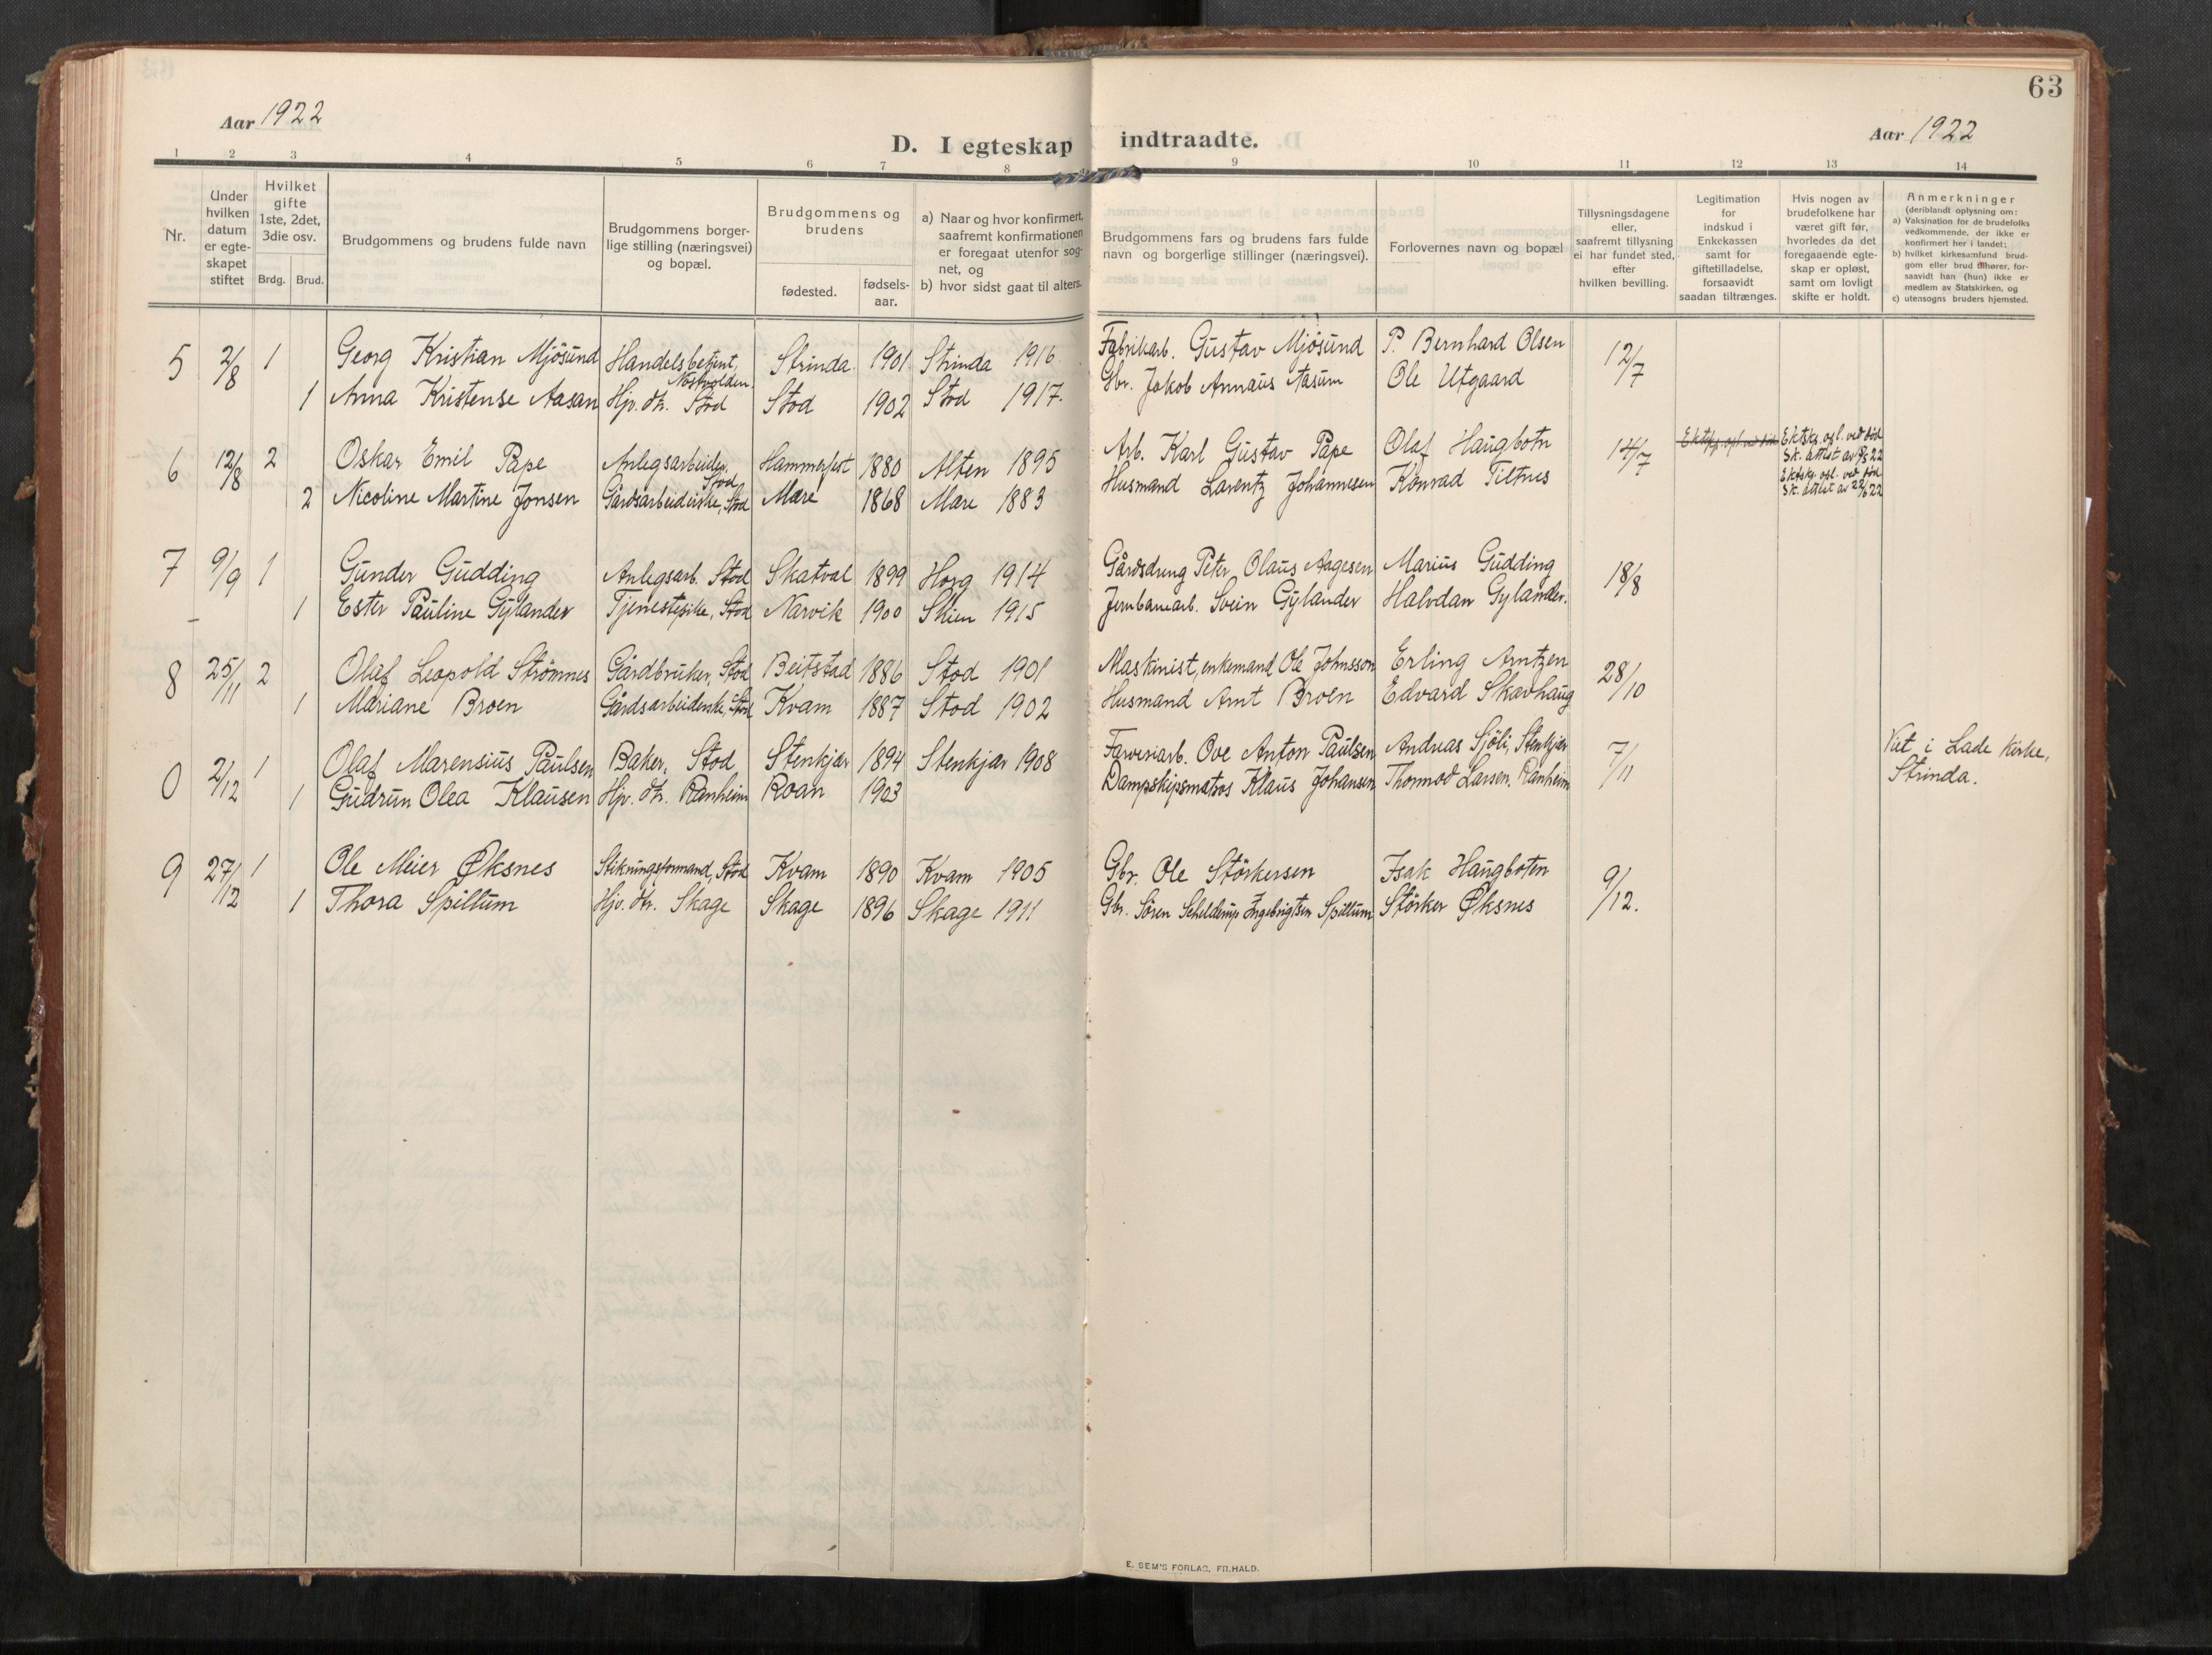 63
Aar 1922
D. I egteskap indtraadte.
Aar 1922
1 2 3 4 5 6 7 8 9 10 11 12 13 14
Nr.
Under hvilken datum er egte-skapet stiftet
Hvilket gifte 1ste, 2det, 3die osv.
Brdg. Brud.
Brudgommens og brudens fulde navn
Brudgommens borger-lige stilling (næringsvei) og bopæl.
Brudgommens og brudens
fødested.
fødsels-aar.
a) Naar og hvor konfirmert, saafremt konfirmationen er foregaat utenfor sog-net, og
b) hvor sidst gaat til alters.
Brudgommens fars og brudens fars fulde navn og borgerlige stillinger (næringsvei).
Forlovernes navn og bopæl
Tillysningsdagene eller, saafremt tillysning ei har fundet sted, efter hvilken bevilling.
Legitimation for indskud i Enkekassen samt for giftetilladelse, forsaavidt saadan tiltrænges.
Hvis nogen av brudefolkene har været gift før, hvorledes da det foregaaende egte-skap er opløst, samt om lovligt skifte er holdt.
Anmerkninger
(deriblandt oplysning om:
a) Vaksination for de brudefolks vedkommende, der ikke er konfirmert her i landet;
b) hvilket kirkesamfund brud-gom eller brud tilhører, for-saavidt han (hun) ikke er medlem av Statskirken, og
c) utensogns bruders hjemsted.
5 2/8 1 Georg Kristian Mjösund Handelsbetjent, Nöstvolden Strinda 1901 Strinda 1916 Fabrikarb. Gustav Mjösund P. Bernhard Olsen 12/7
1 Anna Kristense Aasan Hjv. dtr. Stod Stod 1902 Stod 1917. Gbr. Jakob Annæus Aasum Ole Utgaard
6 12/8 2 Oskar Emil Pape Anlegsarbeider, Stod Hammerfest 1880 Alten 1895 Arb. Karl Gustav Pape Olaf Haugbotn 14/7 Ektsk. opl. ved död Sk. attest av 22
2 Nicoline Martine Jonsen Gårdsarbeiderske, Stod Mære 1868 Mære 1883 Husmand Larentz Johannesen Konrad Tiltnes Ektsk. opl. ved död Sk. attest av 22/6 22
7 9/9 1 Gunder Gudding Anlegsarb. Stod Skatval 1899 Horg 1914 Gårdsdreng Peter Olaus Aagesen Marius Gudding 18/8
1 Ester Pauline Gylander Tjenestepike, Stod Narvik 1900 Skien 1915 Jernbanearb. Svein Gylander Halvdan Gylander.
8 25/11 2 Olaf Leopold Strömnes Gårdbruker, Stod Beitstad 1886 Stod 1901 Maskinist, enkemand Ole Johnsson Erling Arntzen 28/10
1 Mariane Broen Gårdsarbeiderske, Stod Kvam 1887 Stod 1902 Husmand Arnt Broen Edvard Skavhaug
0 2/12 1 Olaf Marensius Paulsen Baker, Stod Stenkjær 1894 Stenkjær 1908 Farveriarb. Ove Anton Paulsen Andreas Sjöli, Stenkjær 7/11 Viet i Lade kirke, Strinda.
1 Gudrun Olea Klausen Hjv. dtr. Ranheim Roan 1903 Dampskipsmatros Klaus Johansen Thormod Larsen, Ranheim
9 27/12 1 Ole Meier Øksnes Stikningsformand, Stod Kvam 1890 Kvam 1905 Gbr. Ole Störkersen Isak Haugboten 9/12.
1 Thora Spillum Hjv. dtr. Skage Skage 1896 Skage 1911 Gbr. Sören Schelderup Ingebrigtsen Spillum Störker Øksnes
E. SEM'S FORLAG, FR.HALD.